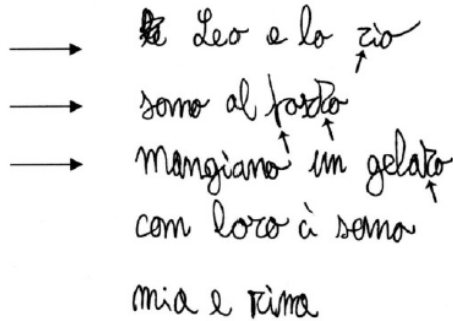 Leo e lo zio
sono al
mangiano un gelato
con loro ci sono
mia e